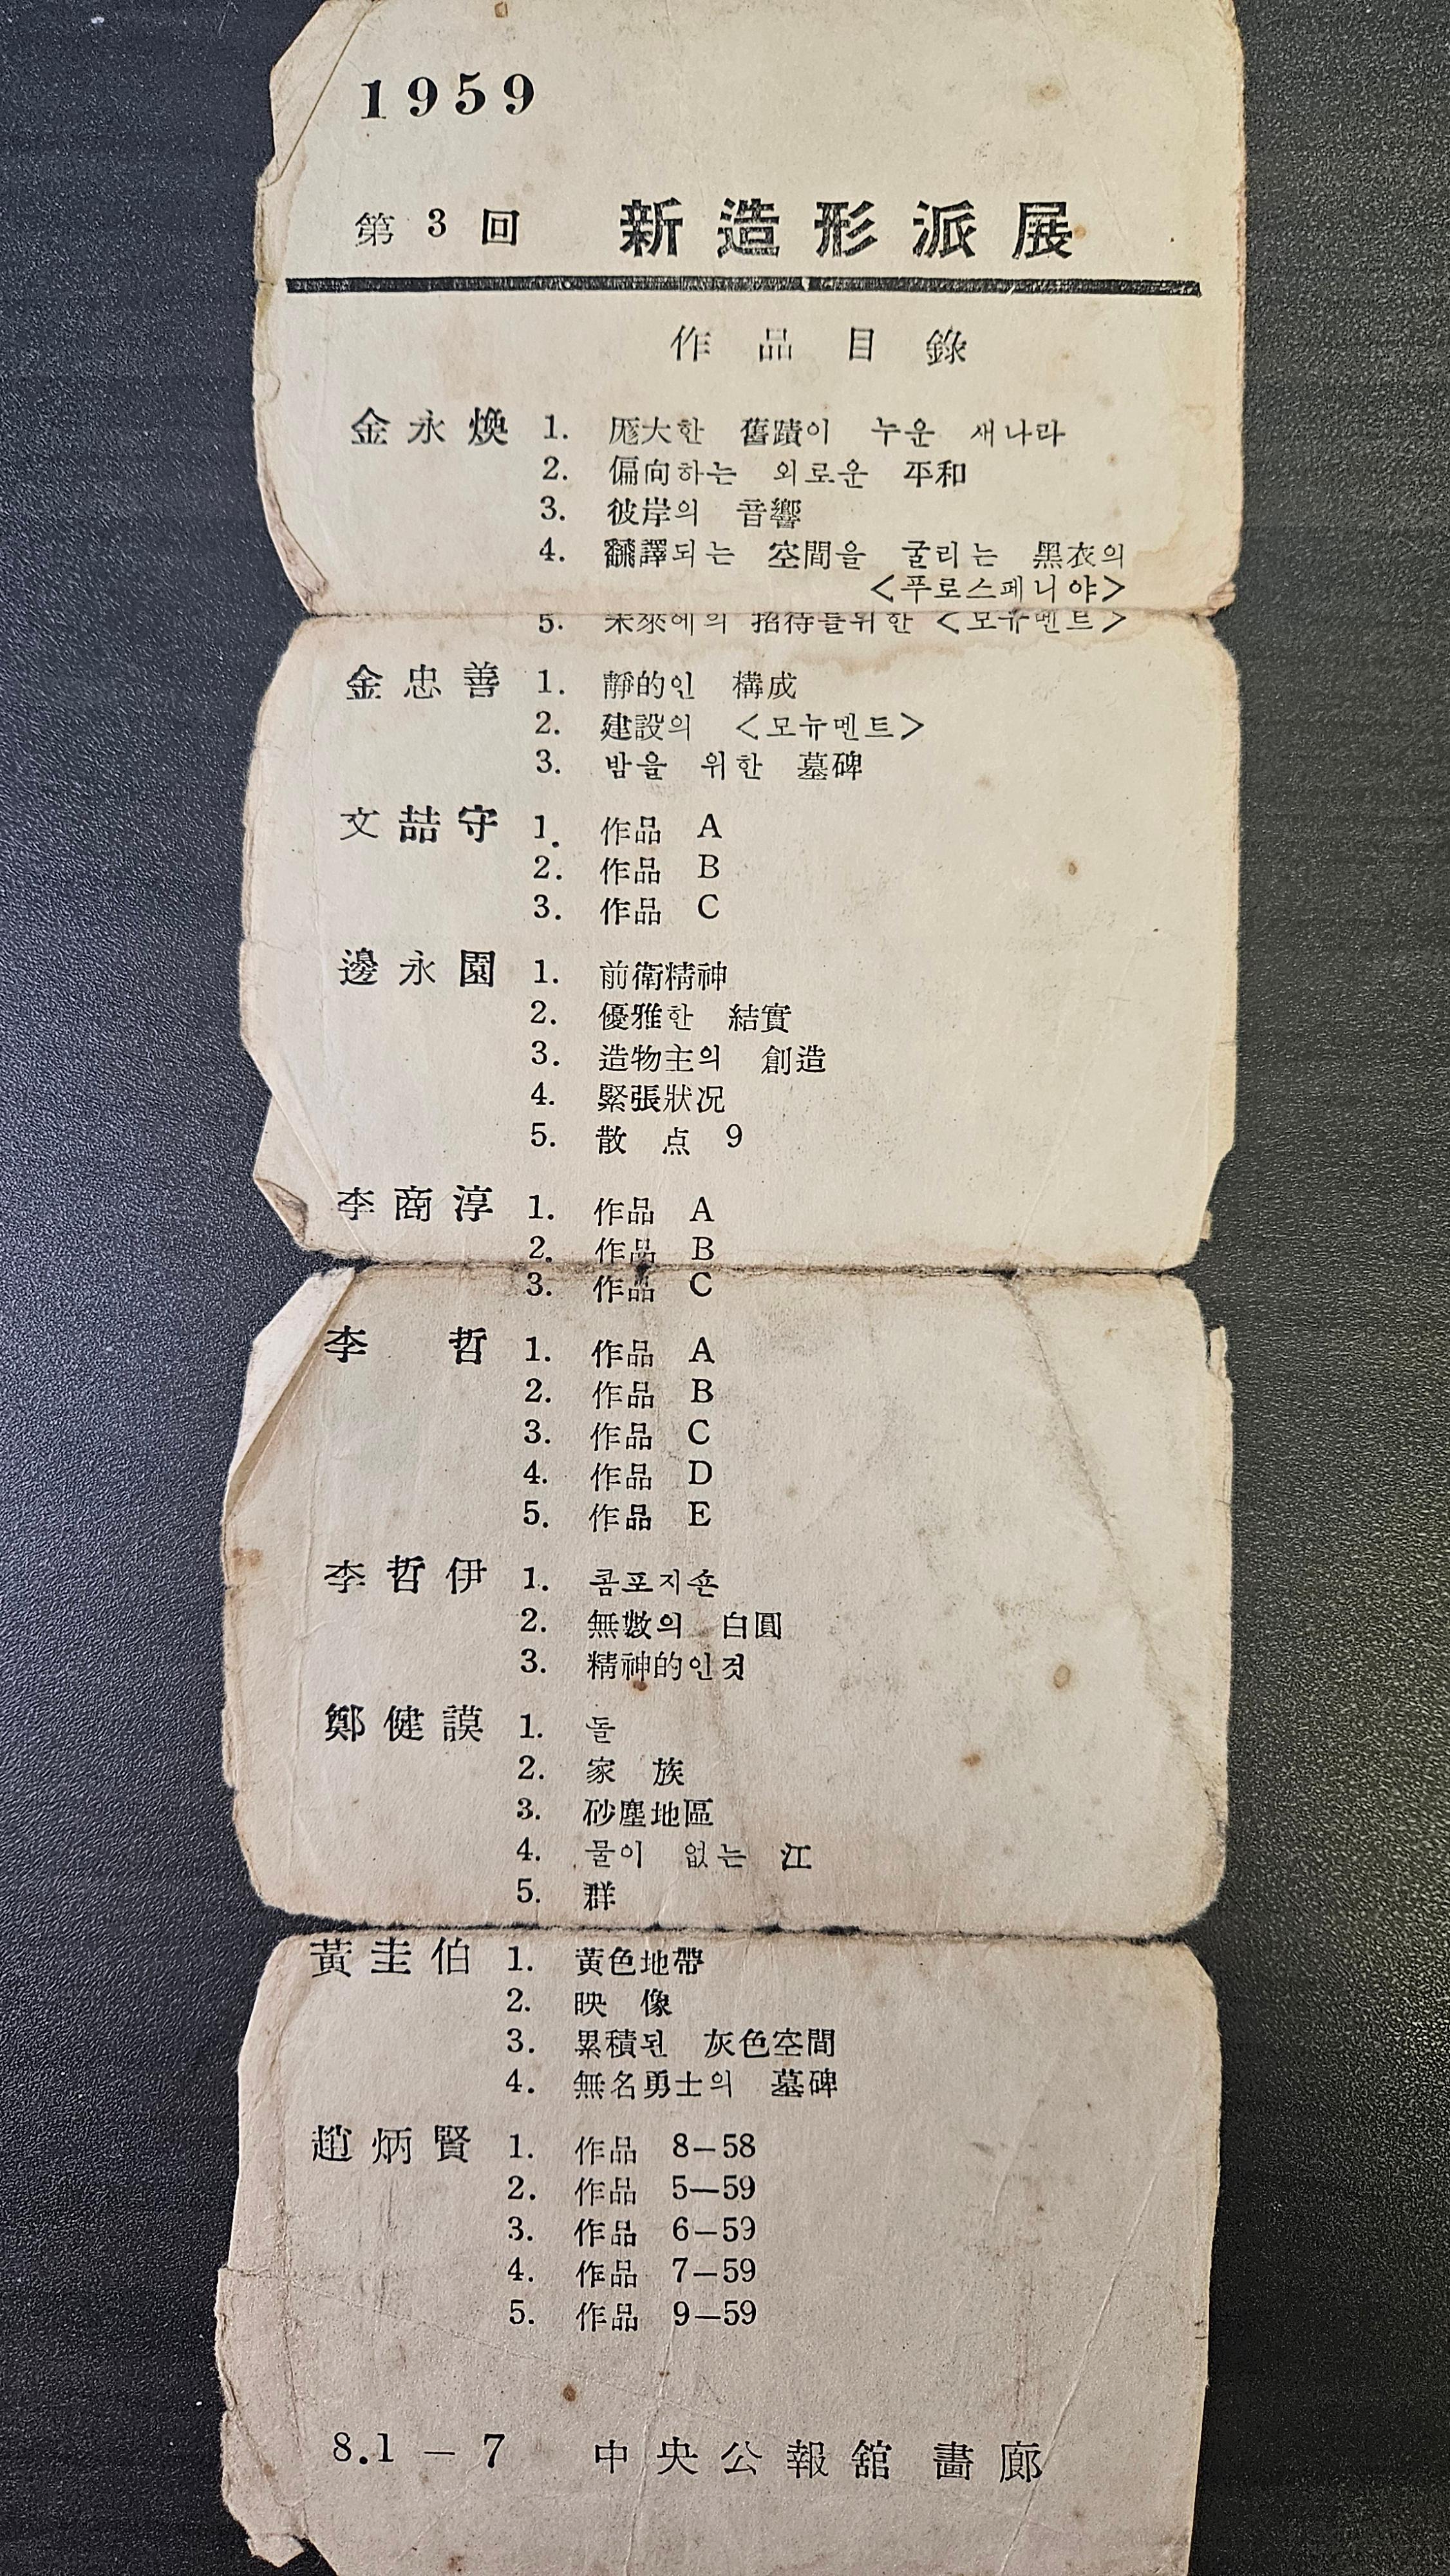 1959
第 3 回 新造形派展
作品目錄
金永煥 1. 厖大한 舊蹟이 누운 새나라
2. 偏向하는 외로운 平和
3. 彼岸의 音響
4. 飜譯되는 空間을 굴리는 黑衣의
<푸로스페니야>
5. 未來에의 招待를위한 <모뉴멘트>
金忠善 1. 靜的인 構成
2. 建設의 <모뉴멘트>
3. 밤을 위한 墓碑
文喆守 1. 作品 A
2. 作品 B
3. 作品 C
邊永園 1. 前衛精神
2. 優雅한 結實
3. 造物主의 創造
4. 緊張狀況
5. 散点 9
李商淳 1. 作品 A
2. 作品 B
3. 作品 C
李哲 1. 作品 A
2. 作品 B
3. 作品 C
4. 作品 D
5. 作品 E
李哲伊 1. 콤포지숀
2. 無數의 白圓
3. 精神的인것
鄭健謨 1. 돌
2. 家族
3. 砂塵地區
4. 물이 없는 江
5. 群
黃圭伯 1. 黃色地帶
2. 映像
3. 累積된 灰色空間
4. 無名勇士의 墓碑
趙炳賢 1. 作品 8—58
2. 作品 5—59
3. 作品 6—59
4. 作品 7—59
5. 作品 9—59
8.1 — 7 中央公報舘 畵廊